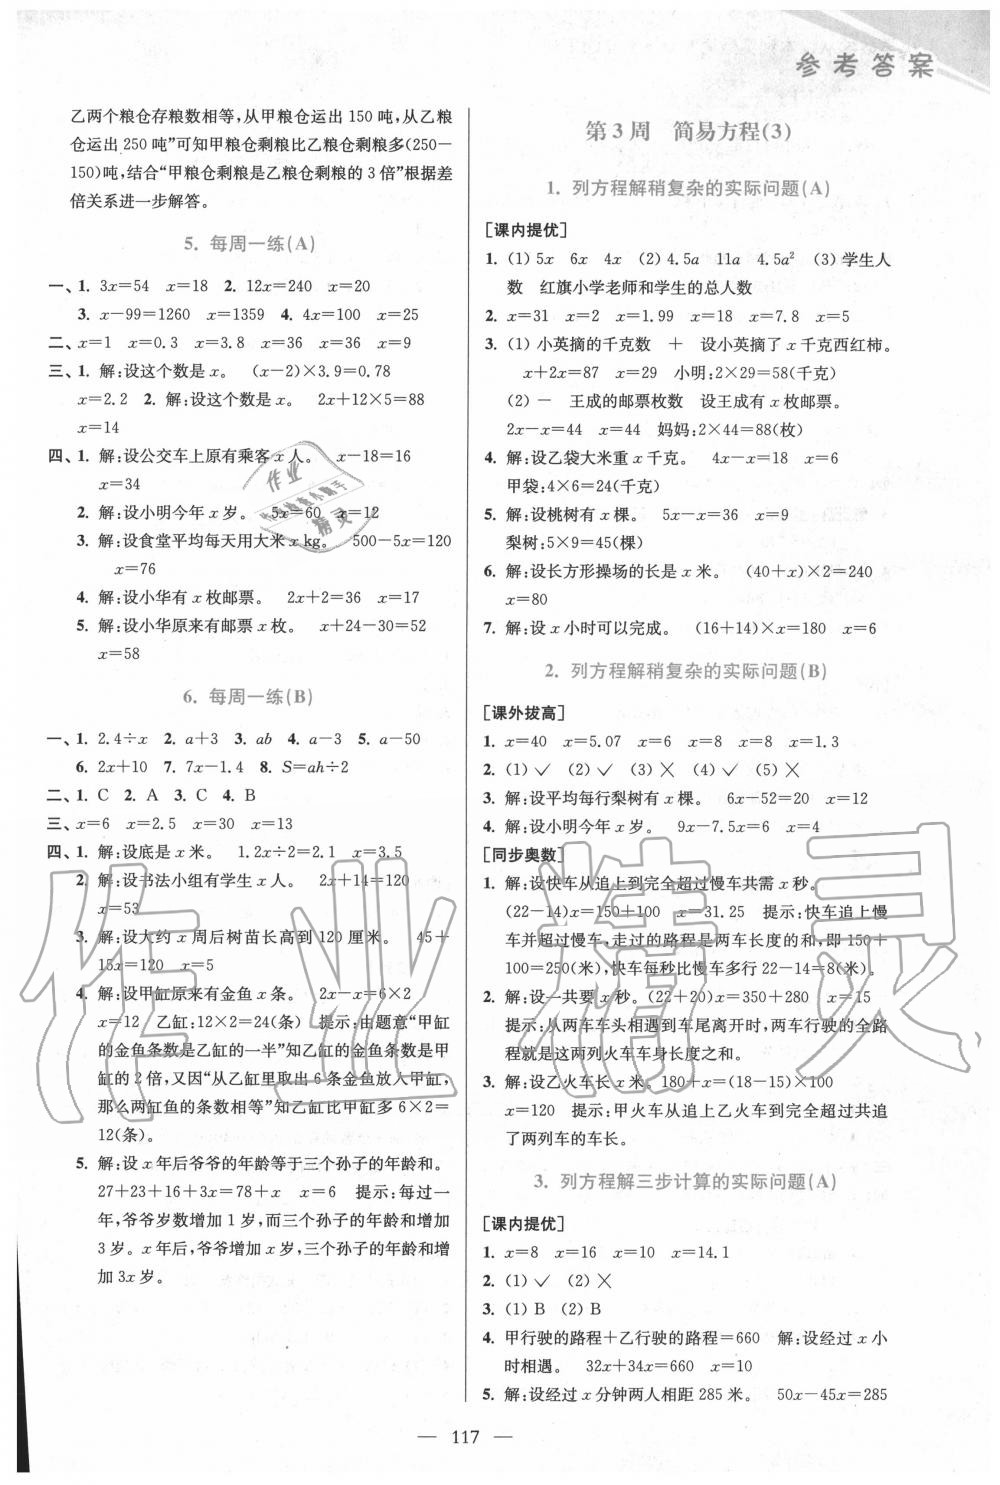 参考答案
乙两个粮仓存粮数相等,从甲粮仓运出 150 吨,从乙粮
仓运出 250 吨”可知甲粮仓剩粮比乙粮仓剩粮多(250-
150)吨,结合“甲粮仓剩粮是乙粮仓剩粮的 3 倍”根据差
倍关系进一步解答。
5. 每周一练(A)
一、1. 3x=54 x=18 2. 12x=240 x=20
3. x-99=1260 x=1359 4. 4x=100 x=25
二、x=1 x=0.3 x=3.8 x=36 x=36 x=9
三、1. 解:设这个数是 x。 (x-2)×3.9=0.78
x=2.2 2. 解:设这个数是 x。 2x+12×5=88
x=14
四、1. 解:设公交车上原有乘客 x 人。 x-18=16
x=34
2. 解:设小明今年 x 岁。 5x=60 x=12
3. 解:设食堂平均每天用大米 x kg。 500-5x=120
x=76
4. 解:设小华有 x 枚邮票。 2x+2=36 x=17
5. 解:设小华原来有邮票 x 枚。 x+24-30=52
x=58
6. 每周一练(B)
一、1. 2.4÷x 2. a+3 3. ab 4. a-3 5. a-50
6. 2x+10 7. 7x-1.4 8. S=ah÷2
二、1. C 2. A 3. C 4. B
三、x=6 x=2.5 x=30 x=13
四、1. 解:设底是 x 米。 1.2x÷2=2.1 x=3.5
2. 解:设书法小组有学生 x 人。 2x+14=120
x=53
3. 解:设大约 x 周后树苗长高到 120 厘米。 45+
15x=120 x=5
4. 解:设甲缸原来有金鱼 x 条。 2x-x=6×2
x=12 乙缸:12×2=24(条) 提示:由题意“甲缸
的金鱼条数是乙缸的一半”知乙缸的金鱼条数是甲
缸的 2 倍,又因“从乙缸里取出 6 条金鱼放入甲缸,
那么两缸鱼的条数相等”知乙缸比甲缸多 6×2=
12(条)。
5. 解:设 x 年后爷爷的年龄等于三个孙子的年龄和。
27+23+16+3x=78+x x=6 提示:每过一
年,爷爷岁数增加 1 岁,而三个孙子的年龄和增加
3 岁。x 年后,爷爷增加 x 岁,三个孙子的年龄和增
加 3x 岁。
第 3 周 简易方程(3)
1. 列方程解稍复杂的实际问题(A)
[课内提优]
1. (1) 5x 6x 4x (2) 4.5a 11a 4.5a² (3) 学生人
数 红旗小学老师和学生的总人数
2. x=31 x=2 x=1.99 x=18 x=7.8 x=5
3. (1) 小英摘的千克数 + 设小英摘了 x 千克西红柿。
x+2x=87 x=29 小明:2×29=58(千克)
(2) - 王成的邮票枚数 设王成有 x 枚邮票。
2x-x=44 x=44 妈妈:2×44=88(枚)
4. 解:设乙袋大米重 x 千克。 4x-x=18 x=6
甲袋:4×6=24(千克)
5. 解:设桃树有 x 棵。 5x-x=36 x=9
梨树:5×9=45(棵)
6. 解:设长方形操场的长是 x 米。 (40+x)×2=240
x=80
7. 解:设 x 小时可以完成。 (16+14)×x=180 x=6
2. 列方程解稍复杂的实际问题(B)
[课外拔高]
1. x=40 x=5.07 x=6 x=8 x=8 x=1.3
2. (1) ✓ (2) ✓ (3) × (4) ✓ (5) ×
3. 解:设平均每行梨树有 x 棵。 6x-52=20 x=12
4. 解:设小明今年 x 岁。 9x-7.5x=6 x=4
[同步奥数]
1. 解:设快车从追上到完全超过慢车共需 x 秒。
(22-14)x=150+100 x=31.25 提示:快车追上慢
车并超过慢车,走过的路程是两车长度的和,即 150+
100=250(米),快车每秒比慢车多行 22-14=8(米)。
2. 解:设一共要 x 秒。(22+20)x=350+280 x=15
提示:从两车车头相遇到车尾离开时,两车行驶的全路
程就是这两列火车车身长度之和。
3. 解:设乙火车长 x 米。180+x=(18-15)×100
x=120 提示:甲火车从追上乙火车到超过共追
了两列车的车长。
3. 列方程解三步计算的实际问题(A)
[课内提优]
1. x=8 x=16 x=10 x=14.1
2. (1) ✓ (2) ×
3. (1) B (2) B
4. 甲行驶的路程+乙行驶的路程=660 解:设经过 x 小
时相遇。 32x+34x=660 x=10
5. 解:设经过 x 分钟两人相距 285 米。 50x-45x=285
— 117 —
作业精灵